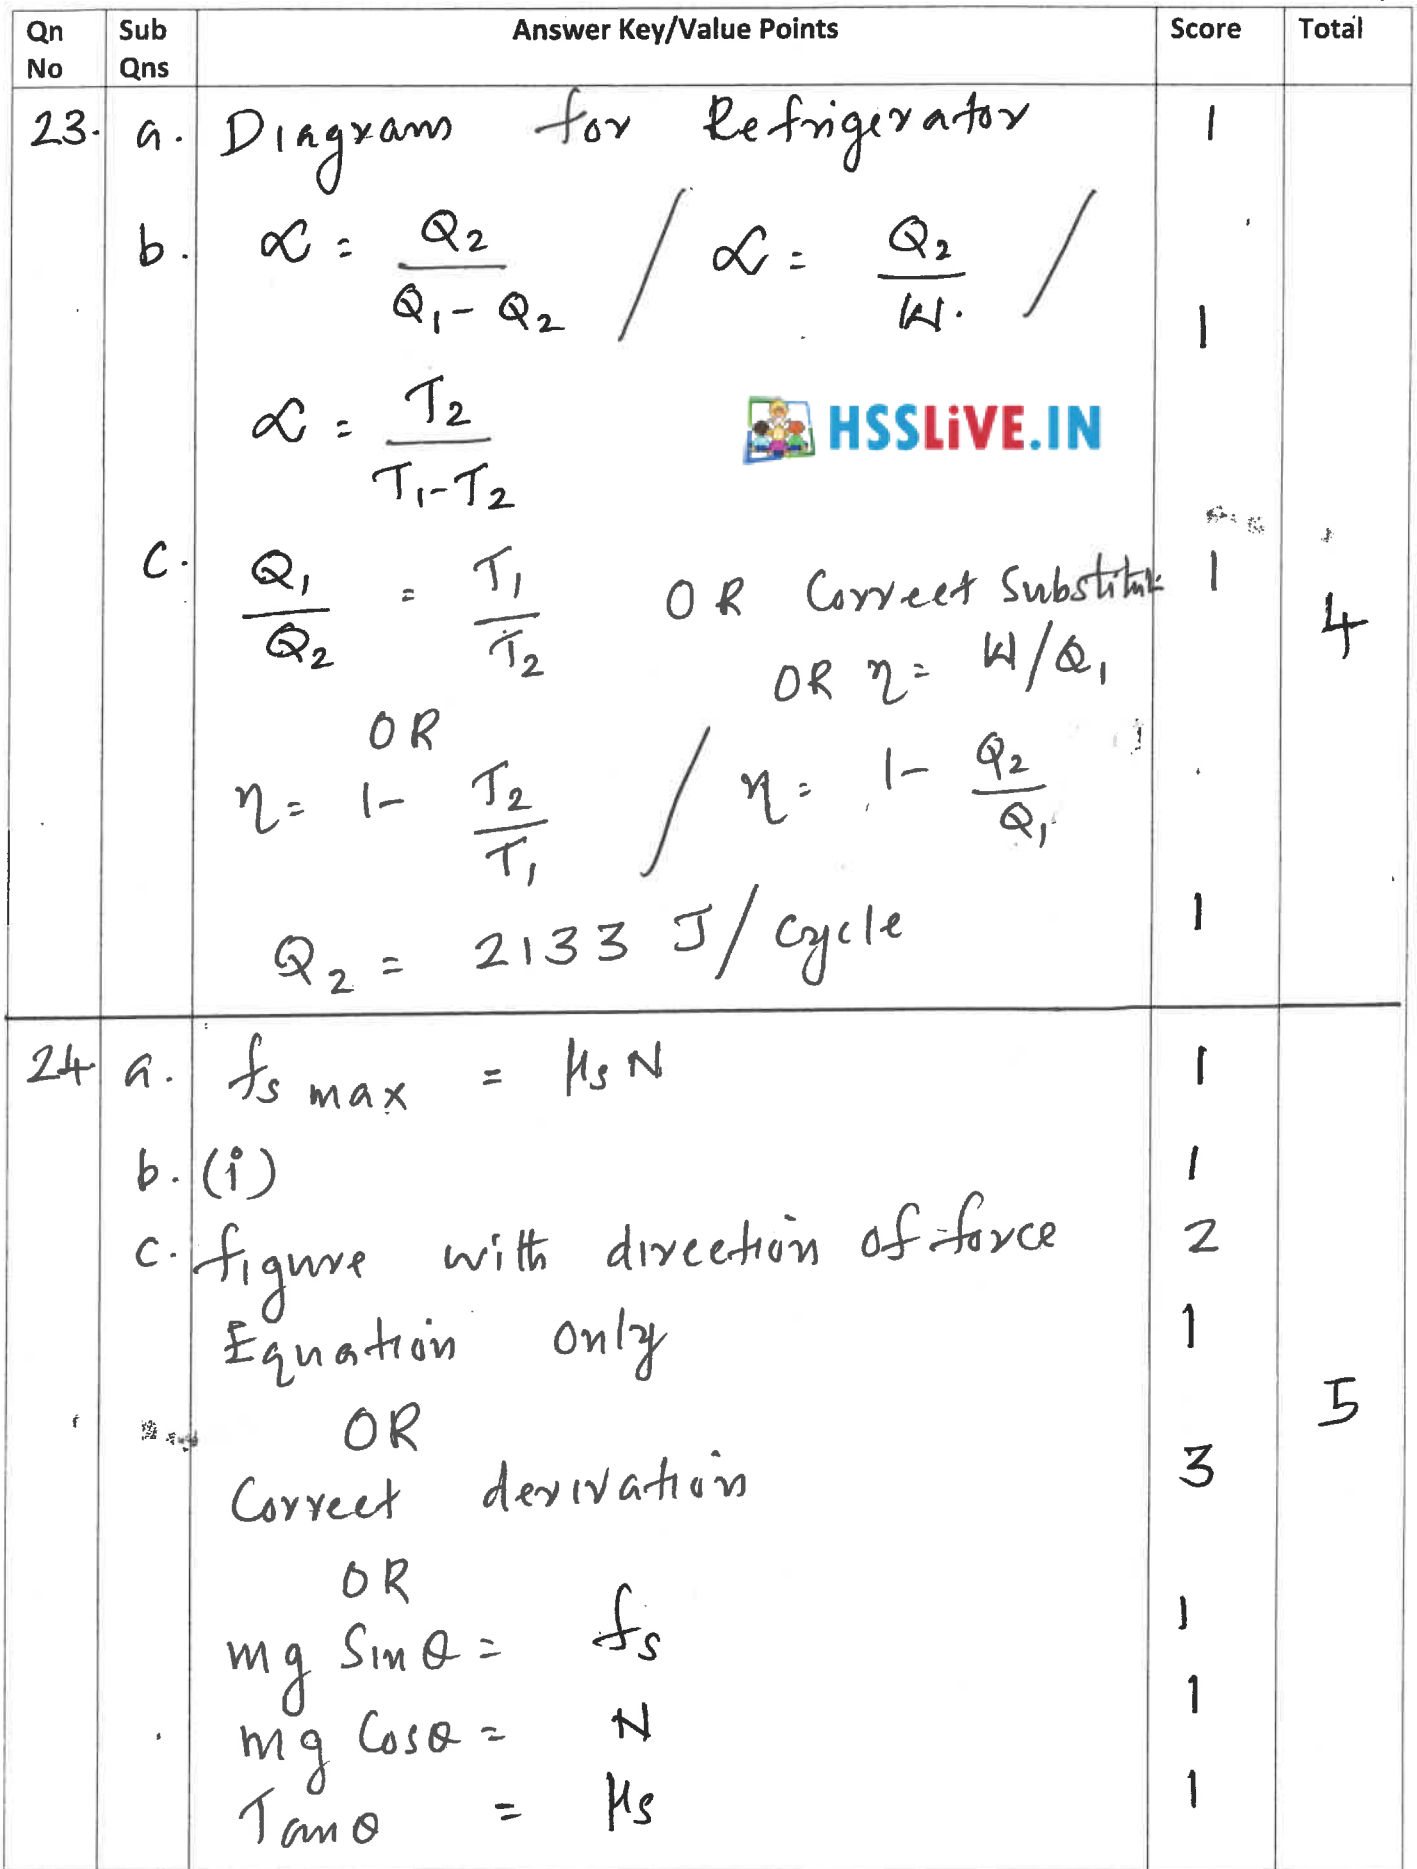 Qn No Sub Qns Answer Key/Value Points Score Total
23. a. Diagram for Refrigerator 1
b. α = Q2 / (Q1 - Q2) / α = Q2 / W. /
1
α = T2 / (T1 - T2)
HSSLiVE.IN
c. Q1/Q2 = T1/T2 OR Correct Substitu 1
4
OR η = W/Q1
OR
η = 1 - T2/T1 / η = 1 - Q2/Q1
Q2 = 2133 J/cycle 1
24 a. fs max = μs N 1
b. (i) 1
c. figure with direction of force 2
Equation only 1
5
OR
Correct derivation 3
OR
mg Sin θ = fs 1
mg Cos θ = N 1
Tan θ = μs 1